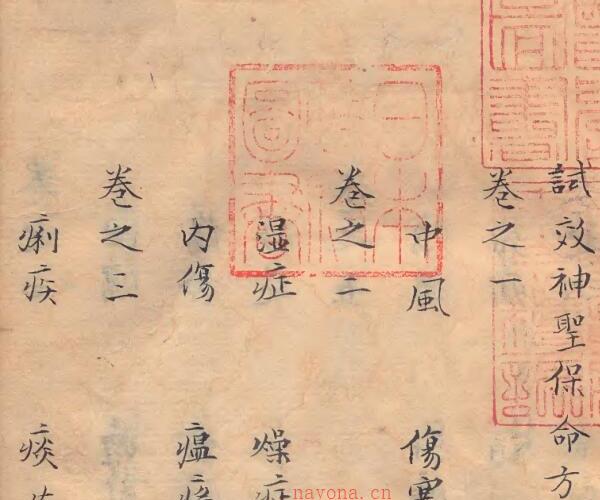 試效神聖保命方
卷之一
中風 傷寒
卷之二
濕症 燥症
內傷 瘟疫
卷之三
痢疾 痰
nayona.cn